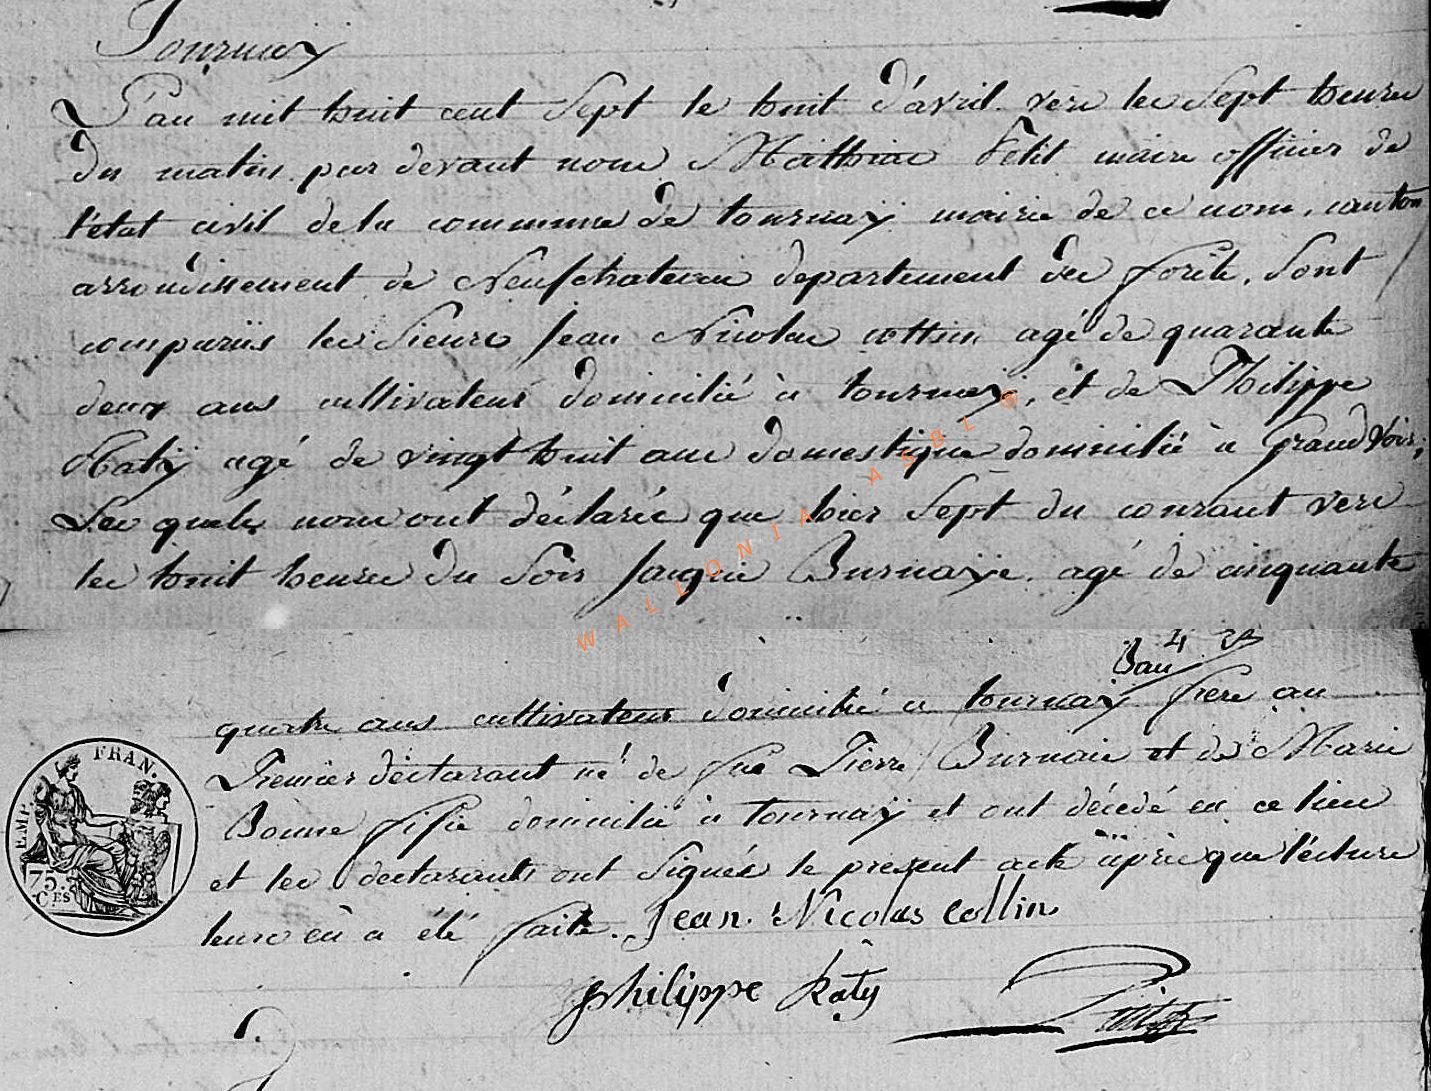 Tournay
L'an mil huit cent Sept le huit d'avril vers les Sept heures
du matin par devant nous Mathias Petit maire officier de
l'état civil de la commune de tournaÿ mairie de ce nom, canton
arrondissement de Neufchateau departement des forêts, Sont
comparüs les Sieurs Jean Nicolas collin agé de quarante
deux ans cultivateur domicilié à tournaÿ, et de Philippe
Katÿ agé de vingt huit ans domestique domicilié à Grand Voir,
Les quels nous ont déclarée que hier Sept du courant vers
les huit heures du Soir Jacque Burnaÿe agé de cinquante
Bau
quatre ans cultivateur domicilié a tournaÿ frere au
Premier declarant né de feu Pierre Burnaie et de Marie
Bonne domicilié à tournaÿ et ont décedé en ce lieu
et les declarants ont Signés le present acte aprés que lécture
leurs en a été faite. Jean Nicolas Collin
philippe Katÿ
Petit
EMP. FRAN.
75.
C.ES
WALLONIA ASBL ©